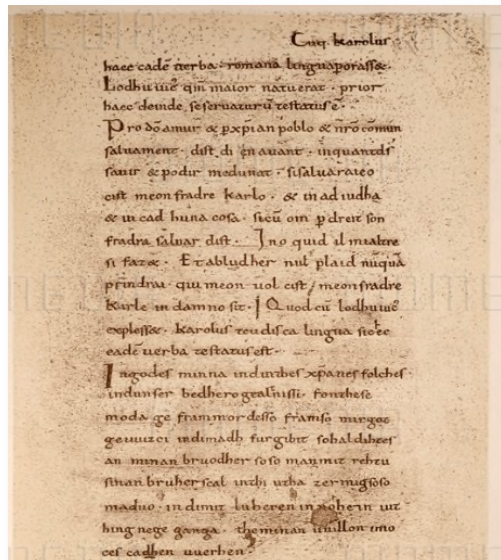 Cūq; karolus
haec eadē uerba · romana linguaporasset ·
Lodhuuuic͛ qm̅ maior natu erat · prior
haec deinde seseruaturū testatusē ·
Pro dō amur & pxp̄ian poblo & nr̄o cōmun
saluament · dist di en auant · inquantds
sauir & podir medunat · sisaluaraieo
cist meon fradre karlo · & in ad iudha
& in cad huna cosa · sicū om p dreit son
fradra saluar dist · Ino quid il mialtre
si faz& · Et abludher nul plaid nūquā
prindrai · qui meon uol cist / meonfradre
karle in damno sit · Quod cū lodhuuic͛
explesset · karolus teudisca lingua sicec
eadē uerba testatusest ·
Ingodes minna indinthes xp̄anes folches
indunser bedhero gealtnissi · fonthese
moda ge frammordesso framso mirgot
geuuizci indimadh furgibit sohaldihtes
an minan bruodher soso manmit rehtu
sinan bruher scal inthi utha zermigsoso
maduo · indimit luheren innohein uut
hing nege ganga · theminan uuillon imo
ces cadhen uuerhen